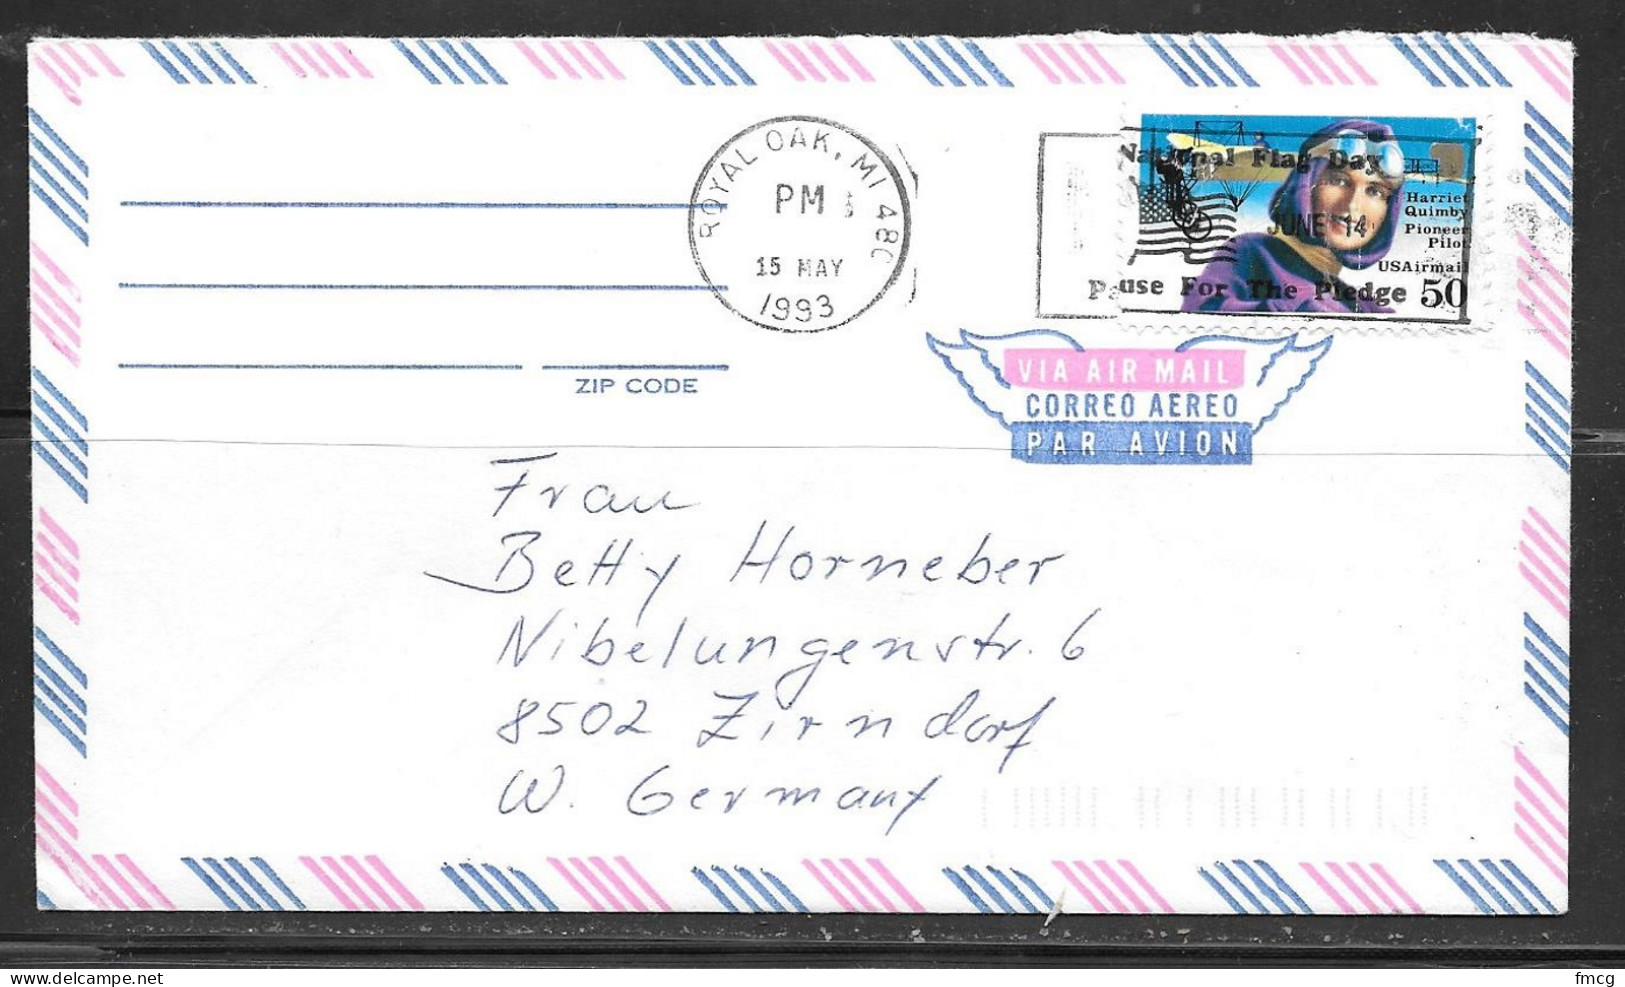 ROYAL OAK, MI 480
PM
15 MAY
1993
National Flag Day
JUNE 14
Pause For The Pledge
Harriet
Quimby
Pioneer
Pilot
USAirmail
50
ZIP CODE
VIA AIR MAIL
CORREO AEREO
PAR AVION
Frau
Betty Horneber
Nibelungenstr. 6
8502 Zirndorf
W. Germany
Delcampe.net
fmcg